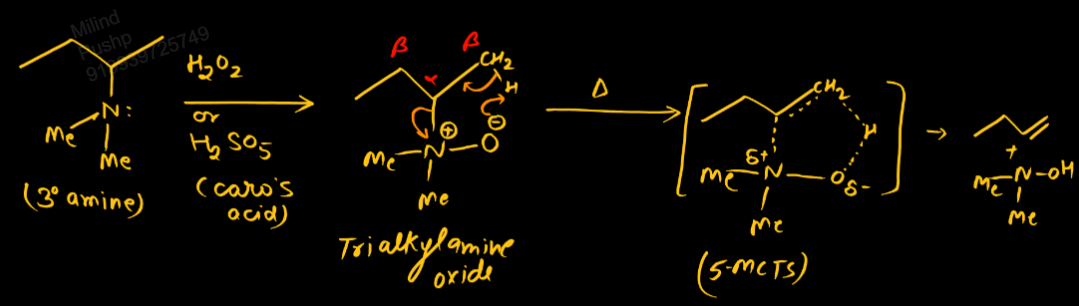 Milind
Pushp
919939725749
N:
Me
Me
(3° amine)
H2O2
or
H2SO5
(caro's
acid)
β
β
α
CH2
H
⊖
⊕
Me
N
O
Me
Trialkylamine
oxide
Δ
CH2
H
δ+
Me
N
O
δ-
Me
(5-MCTS)
+
Me
N-OH
Me